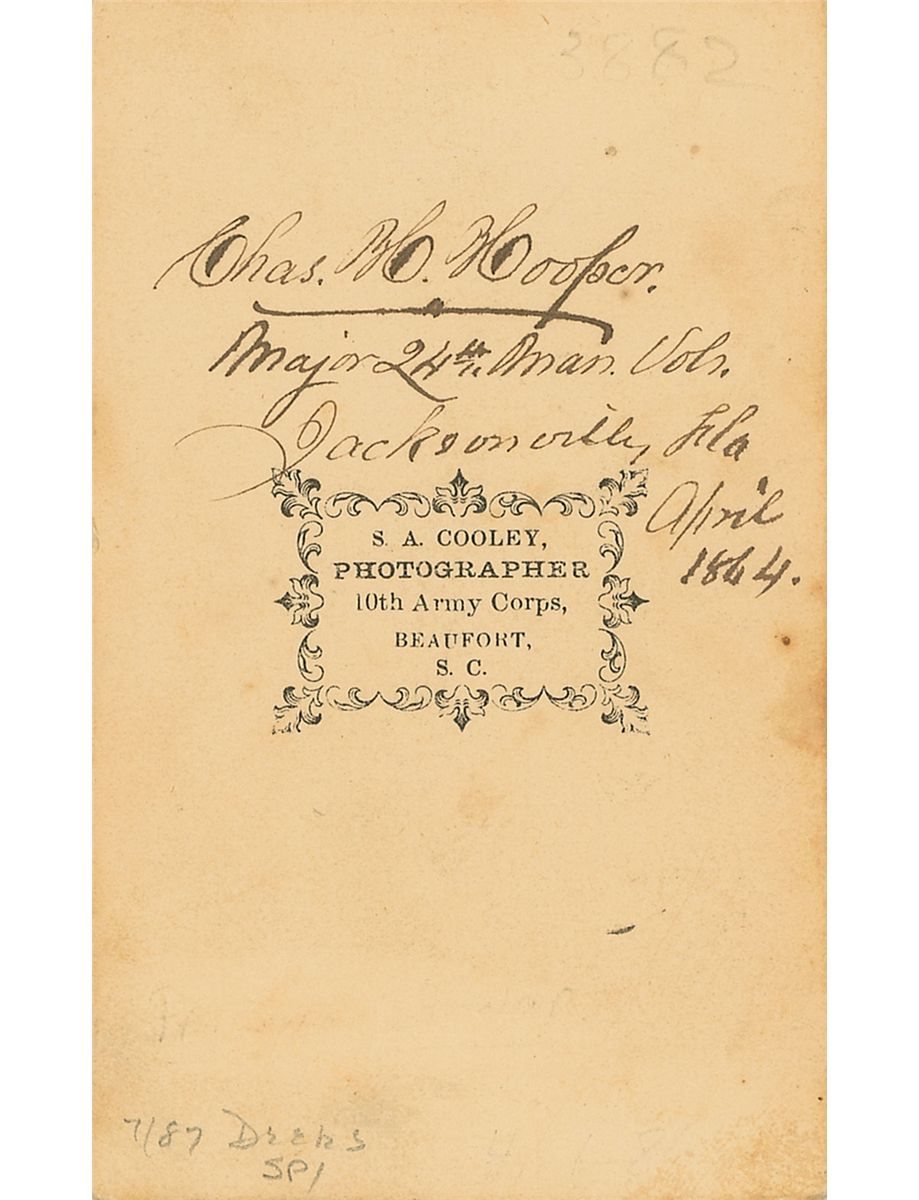 3882
Chas. H. Hooper.
Major 24th. Mass. Vols.
Jacksonville, Fla
April
1864.
S. A. COOLEY,
PHOTOGRAPHER
10th Army Corps,
BEAUFORT,
S. C.
7/87
SP1